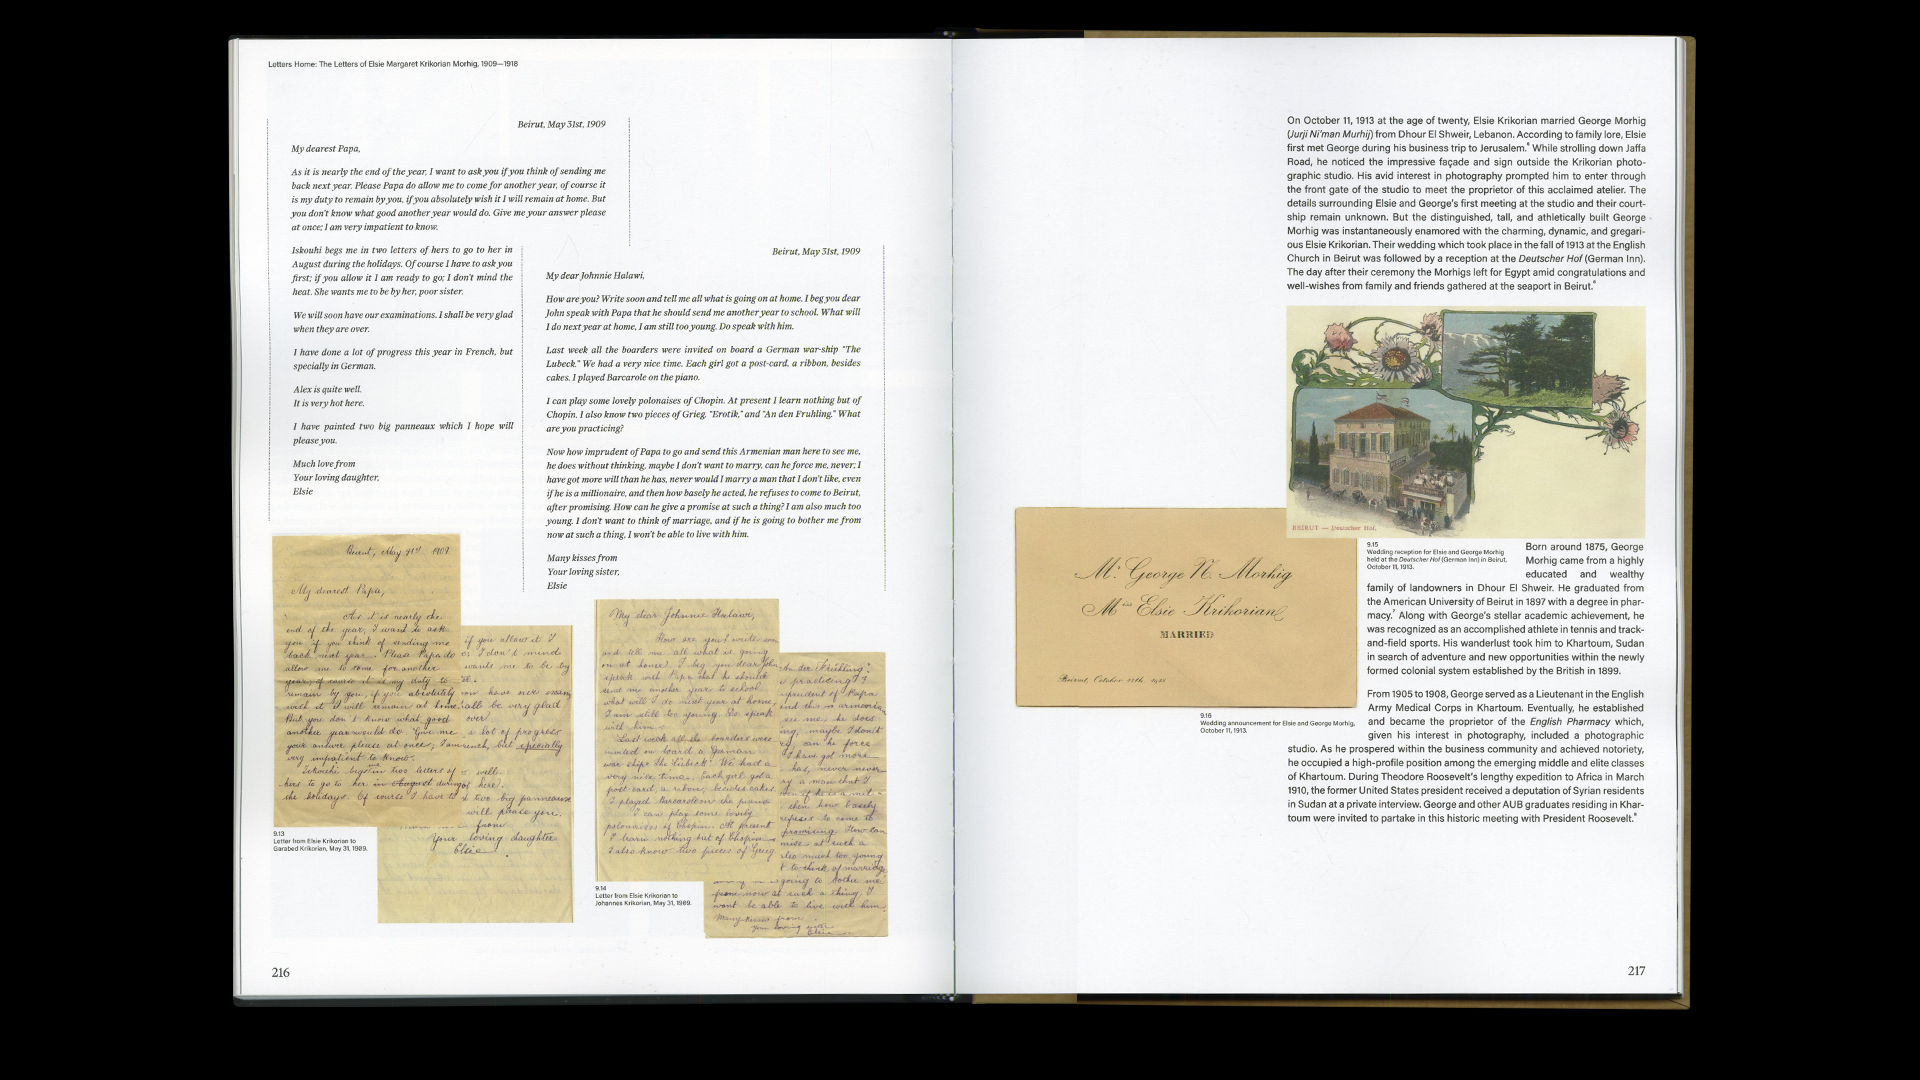 Letters Home: The Letters of Elsie Margaret Krikorian Morhig, 1909—1918
Beirut, May 31st, 1909
My dearest Papa,
As it is nearly the end of the year, I want to ask you if you think of sending me
back next year. Please Papa do allow me to come for another year, of course it
is my duty to remain by you, if you absolutely wish it I will remain at home. But
you don't know what good another year would do. Give me your answer please
at once; I am very impatient to know.
Iskouhi begs me in two letters of hers to go to her in
August during the holidays. Of course I have to ask you
first; if you allow it I am ready to go; I don't mind the
heat. She wants me to be by her, poor sister.
We will soon have our examinations. I shall be very glad
when they are over.
I have done a lot of progress this year in French, but
specially in German.
Alex is quite well.
It is very hot here.
I have painted two big panneaux which I hope will
please you.
Much love from
Your loving daughter,
Elsie
Beirut, May 31st, 1909
My dear Johnnie Halawi,
How are you? Write soon and tell me all what is going on at home. I beg you dear
John speak with Papa that he should send me another year to school. What will
I do next year at home, I am still too young. Do speak with him.
Last week all the boarders were invited on board a German war-ship "The
Lubeck." We had a very nice time. Each girl got a post-card, a ribbon, besides
cakes. I played Barcarole on the piano.
I can play some lovely polonaises of Chopin. At present I learn nothing but of
Chopin. I also know two pieces of Grieg, "Erotik," and "An den Fruhling." What
are you practicing?
Now how imprudent of Papa to go and send this Armenian man here to see me,
he does without thinking, maybe I don't want to marry, can he force me, never; I
have got more will than he has, never would I marry a man that I don't like, even
if he is a millionaire, and then how basely he acted, he refuses to come to Beirut,
after promising. How can he give a promise at such a thing? I am also much too
young. I don't want to think of marriage, and if he is going to bother me from
now at such a thing, I won't be able to live with him.
Many kisses from
Your loving sister,
Elsie
Beirut, May 31st 1909
My dearest Papa,
As it is nearly the
end of the year, I want to ask
you if you think of sending me
back next year. Please Papa do
allow me to come for another
year, of course it is my duty to
remain by you, if you absolutely
wish it I will remain at home.
But you don't know what good
another year would do. Give me
your answer please at once; I am
very impatient to know.
Iskouhi begs me in two letters of
hers to go to her in August during
the holidays. Of course I have to
if you allow it I
I don't mind
wants me to be by
all be very glad
over.
a lot of progress
but specially
well.
here.
two big panneaux
will please you.
from
Your loving daughter
Elsie
9.13
Letter from Elsie Krikorian to
Garabed Krikorian, May 31, 1909.
My dear Johnnie Halawi,
How are you? write soon
and tell me all what is going
on at home. I beg you dear John
speak with Papa that he should
send me another year to school.
what will I do next year at home,
I am still too young. Do speak
with him.
Last week all the boarders were
invited on board a German
war ship "The Lubeck." We had a
very nice time. Each girl got a
post-card, a ribon, besides cakes.
I played Barcarole on the piano
I can play some lovely
polonaises of Chopin. At present
I learn nothing but of Chopin
I also know two pieces of Grieg
An den Frühling."
practicing?
imprudent of Papa
and this
see me, he does
maybe I don't
can he force
I have got more
has, never never
a man that I
then how basely
refuses to come to
promising. How can
at such a
also much too young
to think of marriage
going to bother me
from now at such a thing, I
wont be able to live with him.
Many kisses from
Your loving sister
Elsie
9.14
Letter from Elsie Krikorian to
Johannes Krikorian, May 31, 1909.
216
On October 11, 1913 at the age of twenty, Elsie Krikorian married George Morhig
(Jurji Ni'man Murhij) from Dhour El Shweir, Lebanon. According to family lore, Elsie
first met George during his business trip to Jerusalem. While strolling down Jaffa
Road, he noticed the impressive façade and sign outside the Krikorian photo-
graphic studio. His avid interest in photography prompted him to enter through
the front gate of the studio to meet the proprietor of this acclaimed atelier. The
details surrounding Elsie and George's first meeting at the studio and their court-
ship remain unknown. But the distinguished, tall, and athletically built George
Morhig was instantaneously enamored with the charming, dynamic, and gregari-
ous Elsie Krikorian. Their wedding which took place in the fall of 1913 at the English
Church in Beirut was followed by a reception at the Deutscher Hof (German Inn).
The day after their ceremony the Morhigs left for Egypt amid congratulations and
well-wishes from family and friends gathered at the seaport in Beirut.
BEIRUT — Deutscher Hof.
9.15
Wedding reception for Elsie and George Morhig
held at the Deutscher Hof (German Inn) in Beirut,
October 11, 1913.
Mr. George N. Morhig
Miss Elsie Krikorian
MARRIED
Beirut, October 11th. 1913
9.16
Wedding announcement for Elsie and George Morhig,
October 11, 1913.
Born around 1875, George
Morhig came from a highly
educated and wealthy
family of landowners in Dhour El Shweir. He graduated from
the American University of Beirut in 1897 with a degree in phar-
macy.7 Along with George's stellar academic achievement, he
was recognized as an accomplished athlete in tennis and track-
and-field sports. His wanderlust took him to Khartoum, Sudan
in search of adventure and new opportunities within the newly
formed colonial system established by the British in 1899.
From 1905 to 1908, George served as a Lieutenant in the English
Army Medical Corps in Khartoum. Eventually, he established
and became the proprietor of the English Pharmacy which,
given his interest in photography, included a photographic
studio. As he prospered within the business community and achieved notoriety,
he occupied a high-profile position among the emerging middle and elite classes
of Khartoum. During Theodore Roosevelt's lengthy expedition to Africa in March
1910, the former United States president received a deputation of Syrian residents
in Sudan at a private interview. George and other AUB graduates residing in Khar-
toum were invited to partake in this historic meeting with President Roosevelt.
217